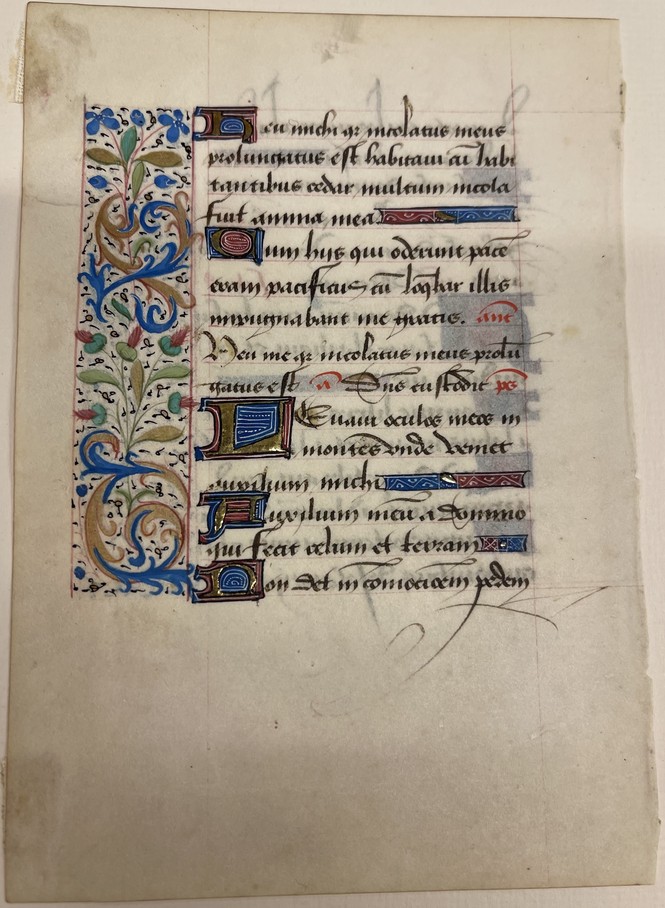 Heu michi qr incolatus meus
prolungatus est habitaui cū habi
tantibus cedar multum incola
fuit anima mea
Cum hijs qui oderunt pacē
eram pacificus cū loq̄bar illis
inpugnabant me gratis. ant̄
Heu me qr incolatus meus prolū
gatus est a Dn̄s custodit ps̄
LEuaui oculos meos in
montes vnde veniet
auxilium michi
Auxilium meū a domino
qui fecit celum et terram
Non det in cōmocōem pedem